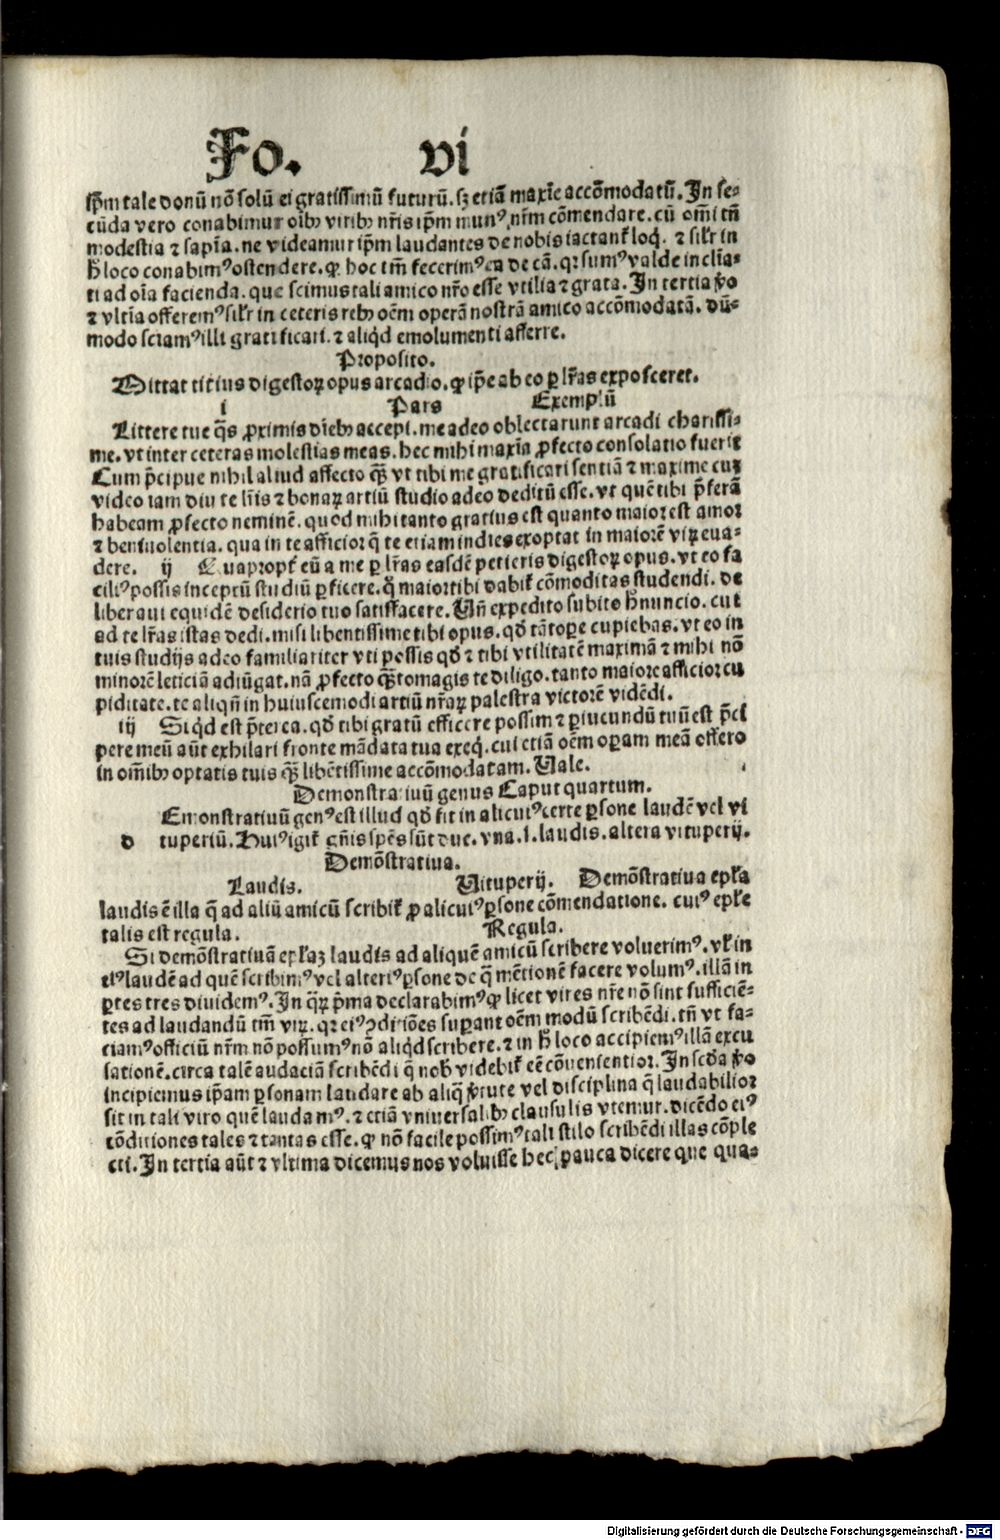 Fo. vi
ip̄m tale donū nō solū ei gratissimū futurū. sꝫ etiā maxīe accōmodatū. In se-
cūda vero conabimur oībꝰ viribꝰ nr̄is ip̄m munꝰ nr̄m cōmendare. cū om̄i tn̄
modestia ⁊ sap̄ia. ne videamur ip̄m laudantes de nobis iactanṫ loq̇. ⁊ silꝛ in
h̄ loco conabimꝰ ostendere. ꝙ hoc tm̄ fecerimꝰ ea de cā. qꝛ sumꝰ valde inclīa-
ti ad oīa facienda. que scimus tali amico nr̄o esse vtilia ⁊ grata. In tertia v̄o
⁊ vltīa offeremꝰ silꝛ in ceteris rebꝰ oēm operā nostrā amico accōmodatā. dū-
modo sciamꝰ illi gratificari. ⁊ aliqd̄ emolumenti afferre.
Proposito.
Dittat titius digestoꝝ opus arcadio. ꝙ ip̄e ab eo ꝑ lr̄as exposceret.
i Pars Exemplū
Littere tue q̄s ꝓximis diebꝰ accepi. me adeo oblectarunt arcadi charissi-
me. vt inter ceteras molestias meas. hec mihi maxīa ꝓfecto consolatio fuerit
Cum p̄cipue nihil aliud affecto qꝫ̄ vt tibi me gratificari sentiā ⁊ maxime cuꝫ
video iam diu te lr̄is ⁊ bonaꝝ artiū studio adeo deditū esse. vt quē tibi p̄ferā
habeam ꝓfecto neminē. quod mihi tanto gratius est quanto maior est amor
⁊ beniuolentia. qua in te afficior q̄ te etiam indies exoptat in maiorē viꝝ eua-
dere. ij Quapropṫ cū a me ꝑ lr̄as easdē petieris digestoꝝ opus. vt eo fa
ciliꝰ possis inceptū studiū ꝑficere. q̄ maior tibi dabiṫ cōmoditas studendi. de
liberaui equidē desiderio tuo satisfacere. Un̄ expedito subito h̄ nuncio. cui
ad te lr̄as istas dedi. misi libentissime tibi opus. qd̄ tātopere cupiebas. vt eo in
tuis studijs adeo familiariter vti possis qd̄ ⁊ tibi vtilitatē maximā ⁊ mihi nō
minorē leticiā adiūgat. nā ꝓfecto qꝫ̄tomagis te diligo. tanto maiore afficior cu
piditate. te aliqn̄ in huiuscemodi artiū nr̄aꝝ palestra victorē vidēdi.
iij Siqd̄ est p̄terea. qd̄ tibi gratū efficere possim ⁊ ꝑiucundū tuū est p̄ci
pere meū aūt exhilari fronte mādata tua exeq̇. cui etiā oēm oꝑam meā offero
in om̄ibꝰ optatis tuis qꝫ̄ libētissime accōmodatam. Uale.
Demonstratiuū genus Caput quartum.
Emonstratiuū genꝰ est illud qd̄ fit in alicuiꝰ certe ꝑsone laudē vel vi
d tuperiū. Huiꝰ igiṫ gn̄is sp̄es sūt due. vna .i. laudis. altera vituperij.
Demōstratiua.
Laudis. Uituperij. Demōstratiua epl̄a
laudis ē illa q̄ ad aliū amicū scribiṫ ꝓ alicuiꝰ ꝑsone cōmendatione. cuiꝰ epl̄e
talis est regula. Regula.
Si demōstratiuā epl̄aꝫ laudis ad aliquē amicū scribere voluerimꝰ. vl̄ in
eiꝰ laudē ad quē scribimꝰ vel alteriꝰ ꝑsone de q̄ mētionē facere volumꝰ. illā in
ꝑtes tres diuidemꝰ. In q̄ꝝ p̄ma declarabimꝰ ꝙ licet vires nr̄e nō sint sufficiē-
tes ad laudandū tm̄ viꝝ. qꝛ eiꝰ ꝯditiōes superant oēm modū scribēdi. tn̄ vt fa-
ciamꝰ officiū nr̄m nō possumꝰ nō aliqd̄ scribere. ⁊ in h̄ loco accipiemꝰ illā excu
sationē. circa talē audaciā scribēdi q̄ nobꝰ videbiṫ eē cōuenientior. In scd̄a v̄o
incipiemus ip̄am ꝑsonam laudare ab aliq̄ v̄tute vel disciplina q̄ laudabilior
sit in tali viro quē laudamꝰ. ⁊ etiā vniuersalibꝰ clausulis vtemur. dicēdo eiꝰ
cōditiones tales ⁊ tantas esse. ꝙ nō facile possimꝰ tali stilo scribēdi illas cōple
cti. In tertia aūt ⁊ vltima dicemus nos voluisse hec pauca dicere que qua-
Digitalisierung gefördert durch die Deutsche Forschungsgemeinschaft - DFG